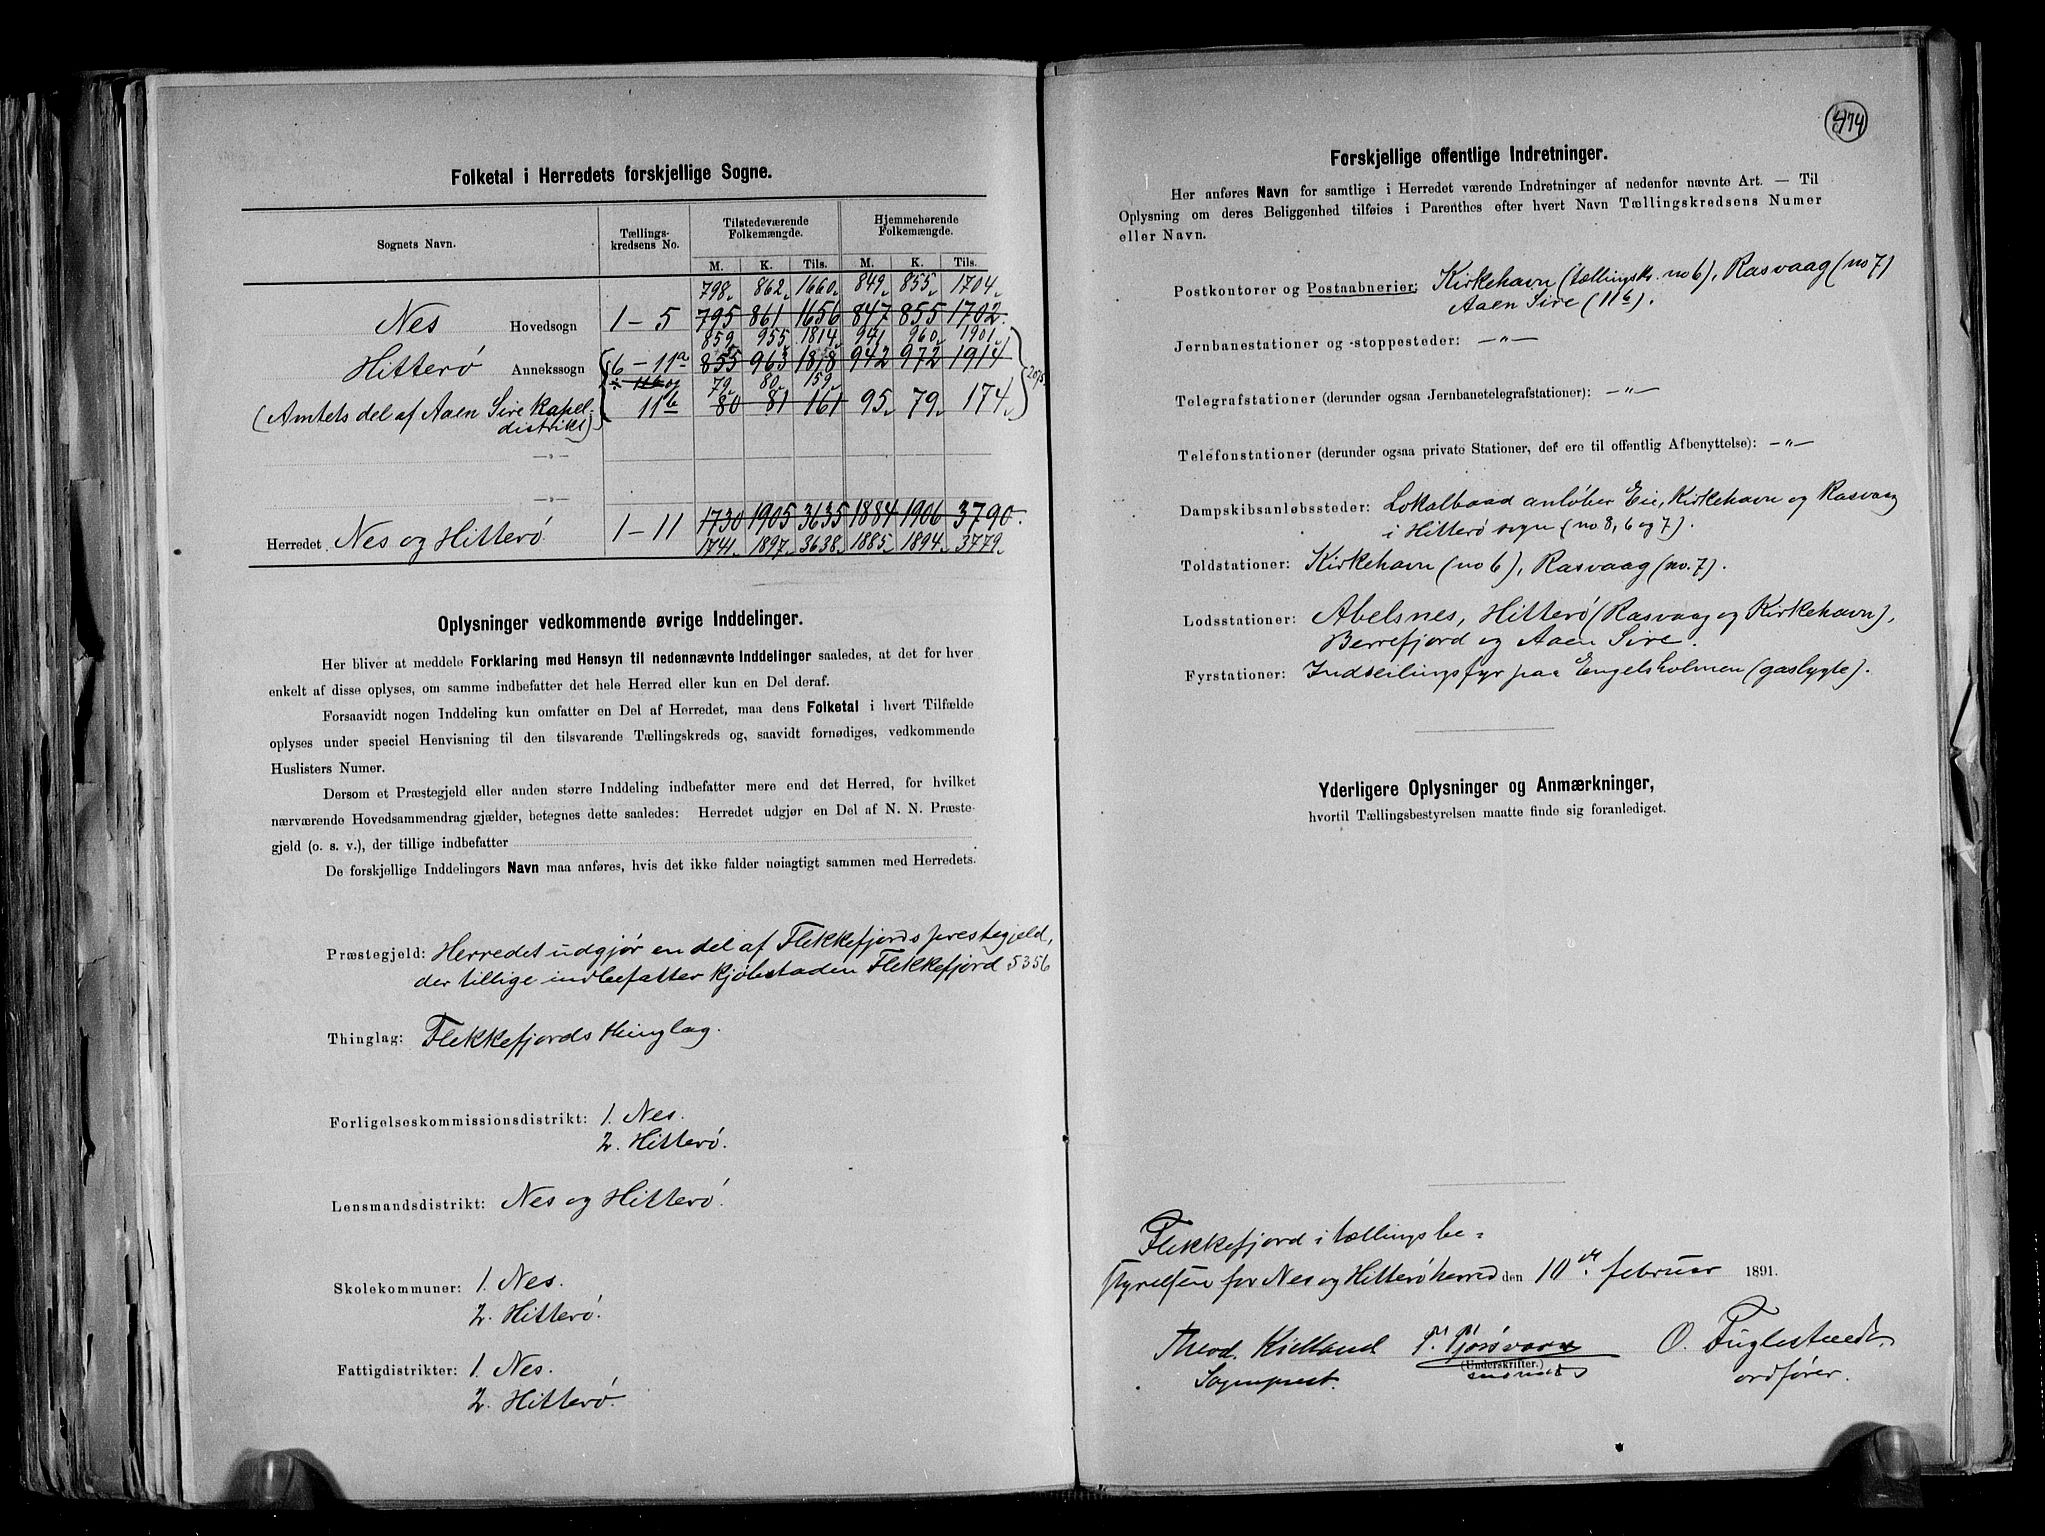 Folketal i Herredets forskjellige Sogne.
Sognets Navn.
Tællings-
kredsens No.
Tilstedeværende
Folkemængde.
Hjemmehørende
Folkemængde.
M. K. Tils. M. K. Tils.
798. 862. 1660. 849. 855. 1704.
Nes Hovedsogn 1-5 795 861 1656 847 855 1702.
859. 955. 1814. 941 960. 1901.
Hitterø Annekssogn 6-11a 855 963 1818 942 972 1914
11b og 79. 80. 159.
(Amtets del af Aaen Sire kapel- 11b 80 81 161 95. 79. 174. 2075.
distrikt)
—„—
—„—
1730 1905 3635 1884 1906 3790.
Herredet Nes og Hitterø 1-11
1741. 1897. 3638. 1885. 1894. 3779.
Oplysninger vedkommende øvrige Inddelinger.
Her bliver at meddele Forklaring med Hensyn til nedennævnte Inddelinger saaledes, at det for hver
enkelt af disse oplyses, om samme indbefatter det hele Herred eller kun en Del deraf.
Forsaavidt nogen Inddeling kun omfatter en Del af Herredet, maa dens Folketal i hvert Tilfælde
oplyses under speciel Henvisning til den tilsvarende Tællingskreds og, saavidt fornødiges, vedkommende
Huslisters Numer.
Dersom et Præstegjeld eller anden større Inddeling indbefatter mere end det Herred, for hvilket
nærværende Hovedsammendrag gjælder, betegnes dette saaledes: Herredet udgjør en Del af N. N. Præste-
gjeld (o. s. v.), der tillige indbefatter
De forskjellige Inddelingers Navn maa anføres, hvis det ikke falder nøiagtigt sammen med Herredets.
Præstegjeld: Herredet udgjør en del af Flekkefjords prestegjeld,
der tillige indbefatter kjøbstaden Flekkefjord 5356
Thinglag: Flekkefjords thinglag.
Forligelseskommissionsdistrikt: 1. Nes.
2. Hitterø.
Lensmandsdistrikt: Nes og Hitterø.
Skolekommuner: 1. Nes.
2. Hitterø.
Fattigdistrikter: 1. Nes.
2. Hitterø.
474
Forskjellige offentlige Indretninger.
Her anføres Navn for samtlige i Herredet værende Indretninger af nedenfor nævnte Art. — Til
Oplysning om deres Beliggenhed tilføies i Parenthes efter hvert Navn Tællingskredsens Numer
eller Navn.
Postkontorer og Postaabnerier: Kirkehavn (tællingskr. no 6), Rasvaag (no 7)
Aaen Sire (11b).
Jernbanestationer og -stoppesteder: —„—
Telegrafstationer (derunder ogsaa Jernbanetelegrafstationer): —„—
Telefonstationer (derunder ogsaa private Stationer, der ere til offentlig Afbenyttelse): —„—
Dampskibsanløbssteder: Lokalbaad anløber Eie, Kirkehavn og Rasvaag
i Hitterø sogn (no 8, 6 og 7).
Toldstationer: Kirkehavn (no 6), Rasvaag (no. 7).
Lodsstationer: Abelsnes, Hitterø (Rasvaag og Kirkehavn),
Berrefjord og Aaen Sire.
Fyrstationer: Indseilingsfyr paa Engelsholmen (gaslygte).
Yderligere Oplysninger og Anmærkninger,
hvortil Tællingsbestyrelsen maatte finde sig foranlediget.
Flekkefjord i tællingsbe-
styrelsen for Nes og Hitterø herred den 10de februar 1891.
Theod. Kielland P. Tjørsvaag O. Fuglestvedt
(Underskrifter.)
Sogneprest. ordfører.